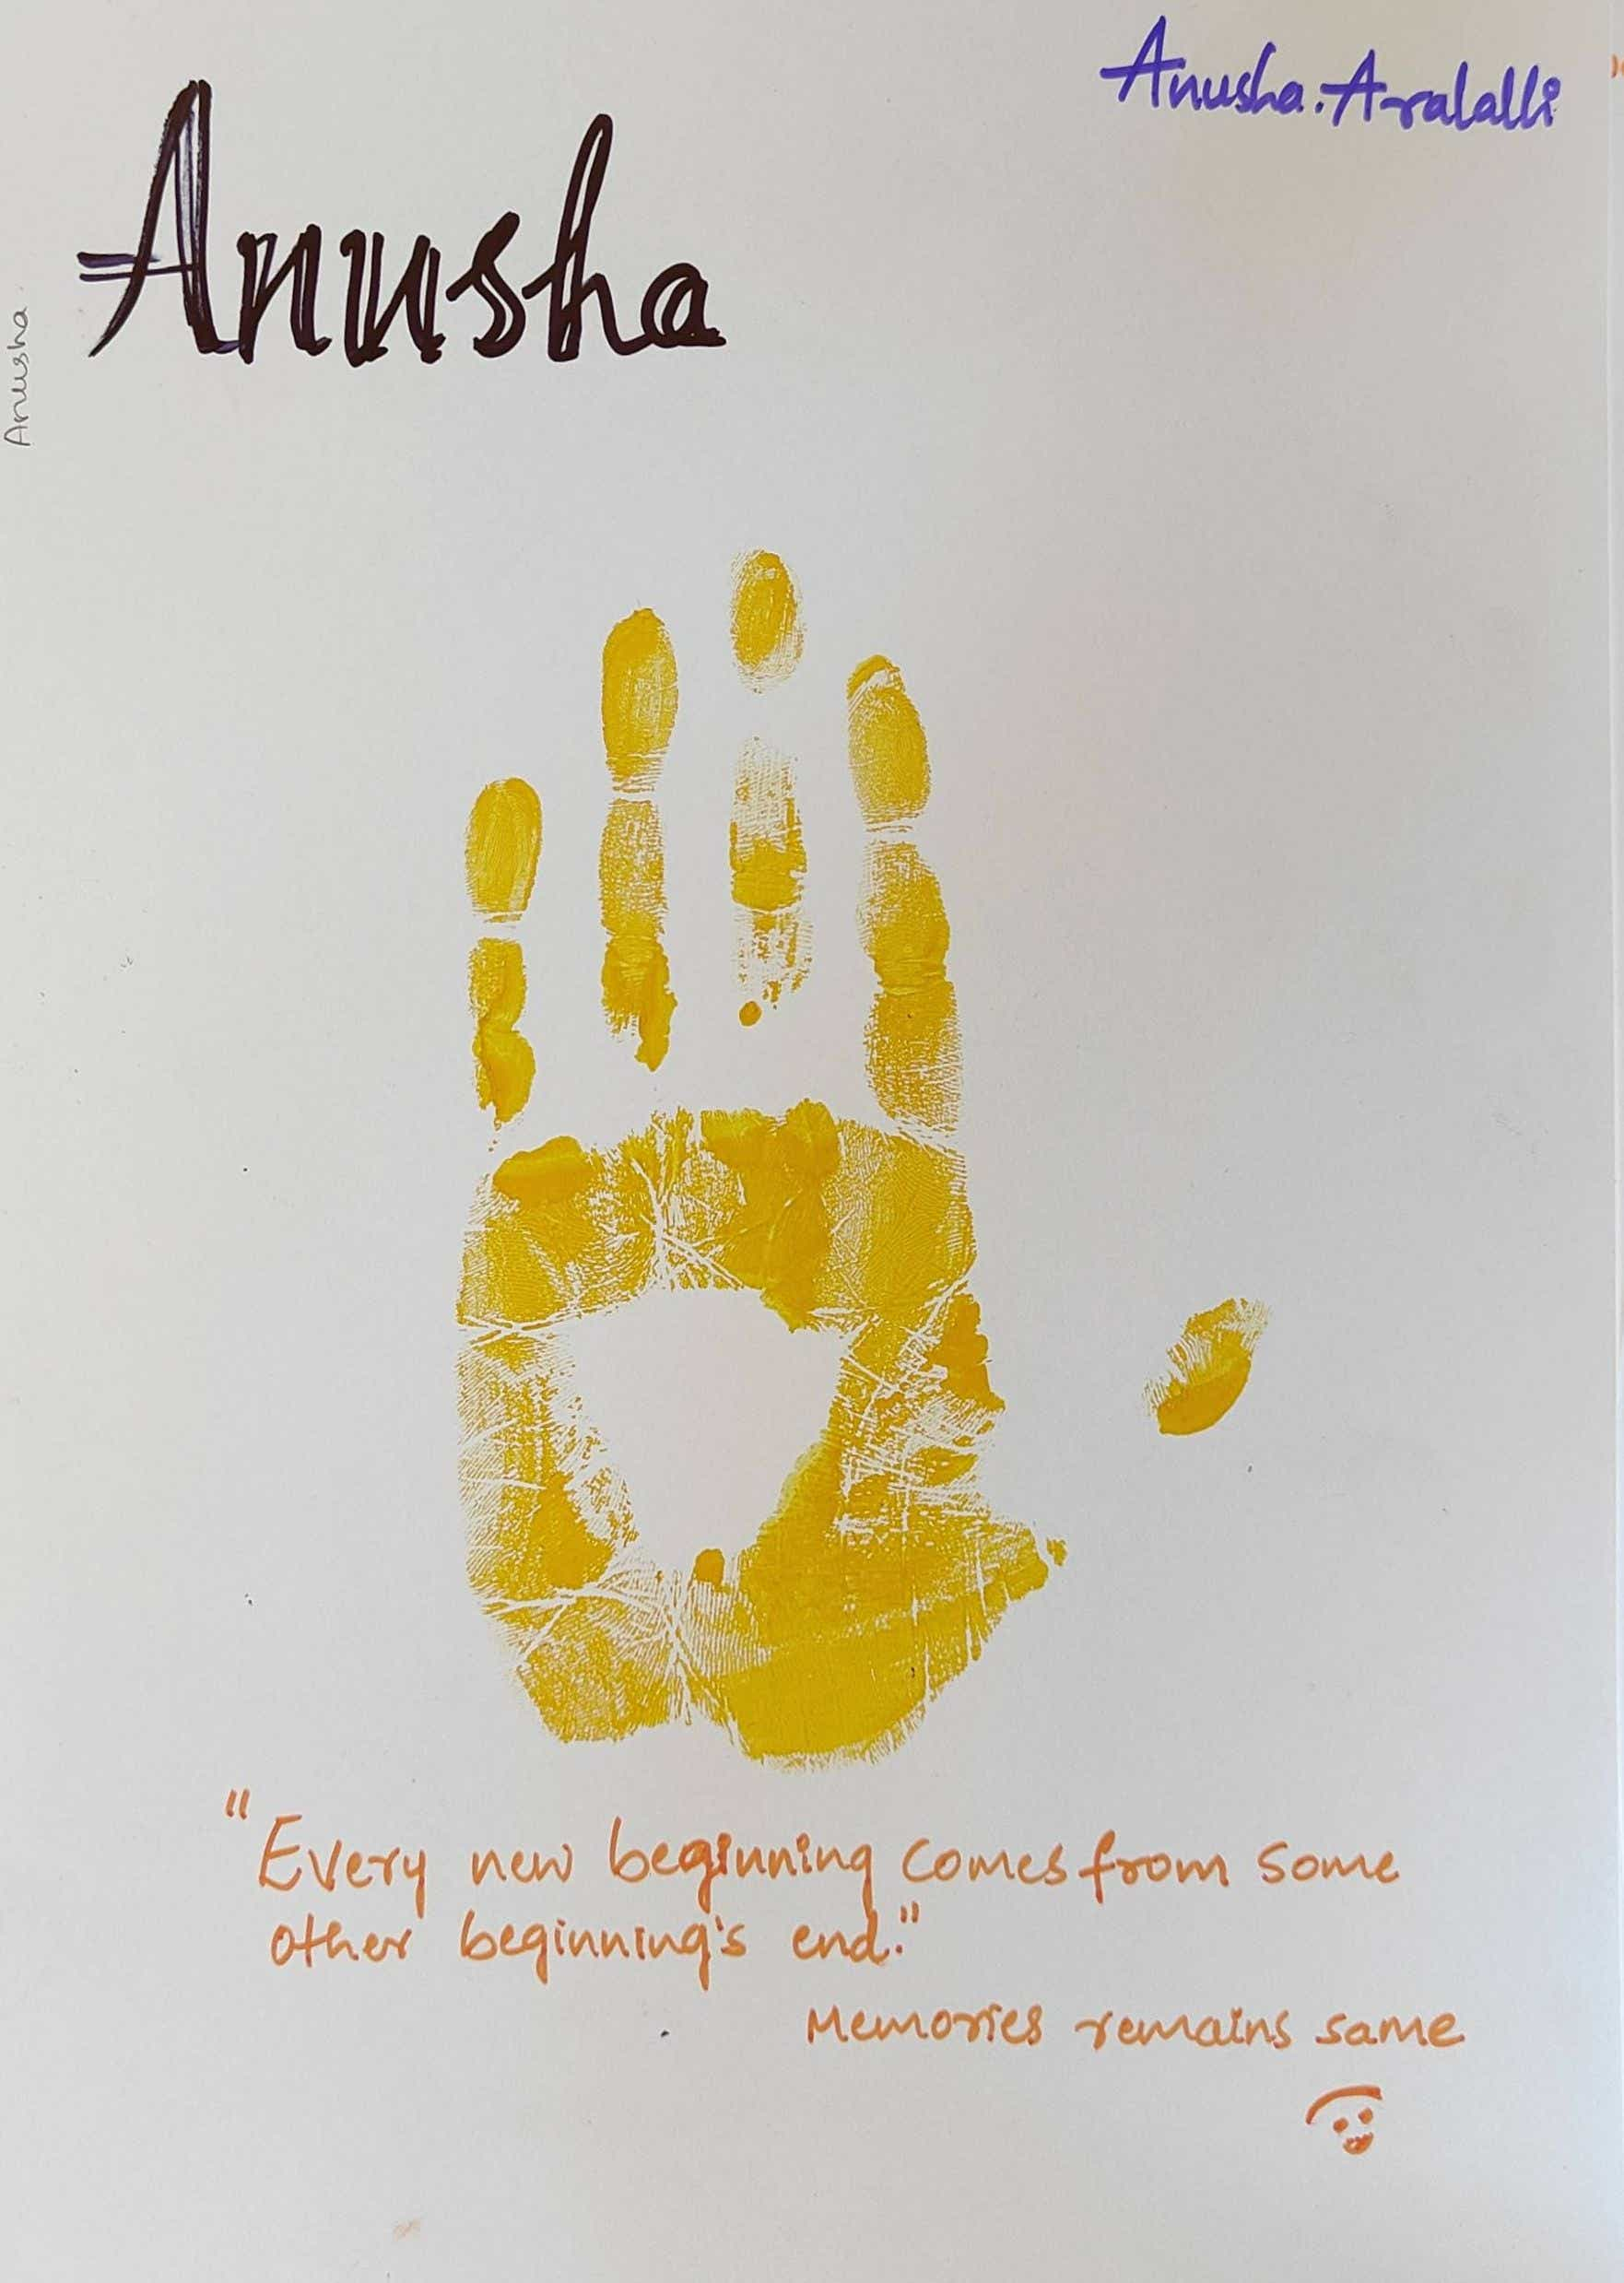 Anusha.Aralalli
Anusha
Anusha.
"Every new beginning comes from some
other beginning's end."
Memories remains same